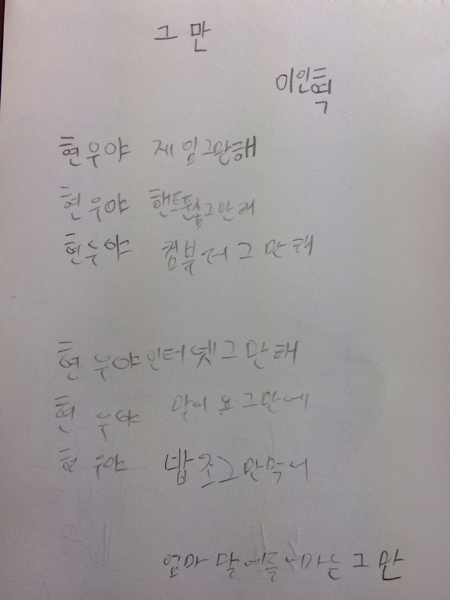 그만
이인혁
현우야 제임그만해
현우야 핸드폰좀그만해
현우야 컴부터그만해
현우야인터넷그만해
현우야 그만해
현우야 밥조그만먹어
엄마 말 그만